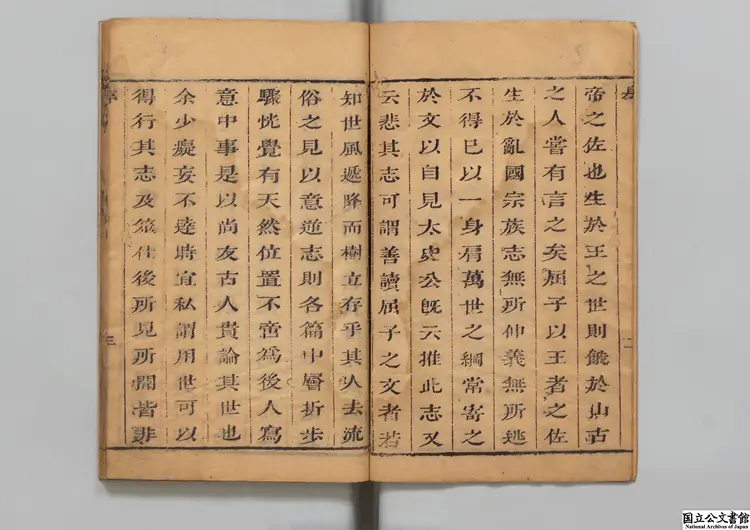 帝之佐也生於王之世則餓於山古
之人嘗有言之矣屈子以王者之佐
生於亂國宗族志無所伸義無所逃
不得已以一身肩萬世之綱常寄之
於文以自見太史公旣云推此志又
云悲其志可謂善讀屈子之文者若
知世風遞降而樹立存乎其人去流
俗之見以意逆志則各篇中層折步
驟恍覺有天然位置不啻爲後人寫
意中事是以尚友古人貴論其世也
余少癡妄不達時宜私謂用世可以
得行其志及筮仕後所見所聞皆非
序
二
三
国立公文書館
National Archives of Japan